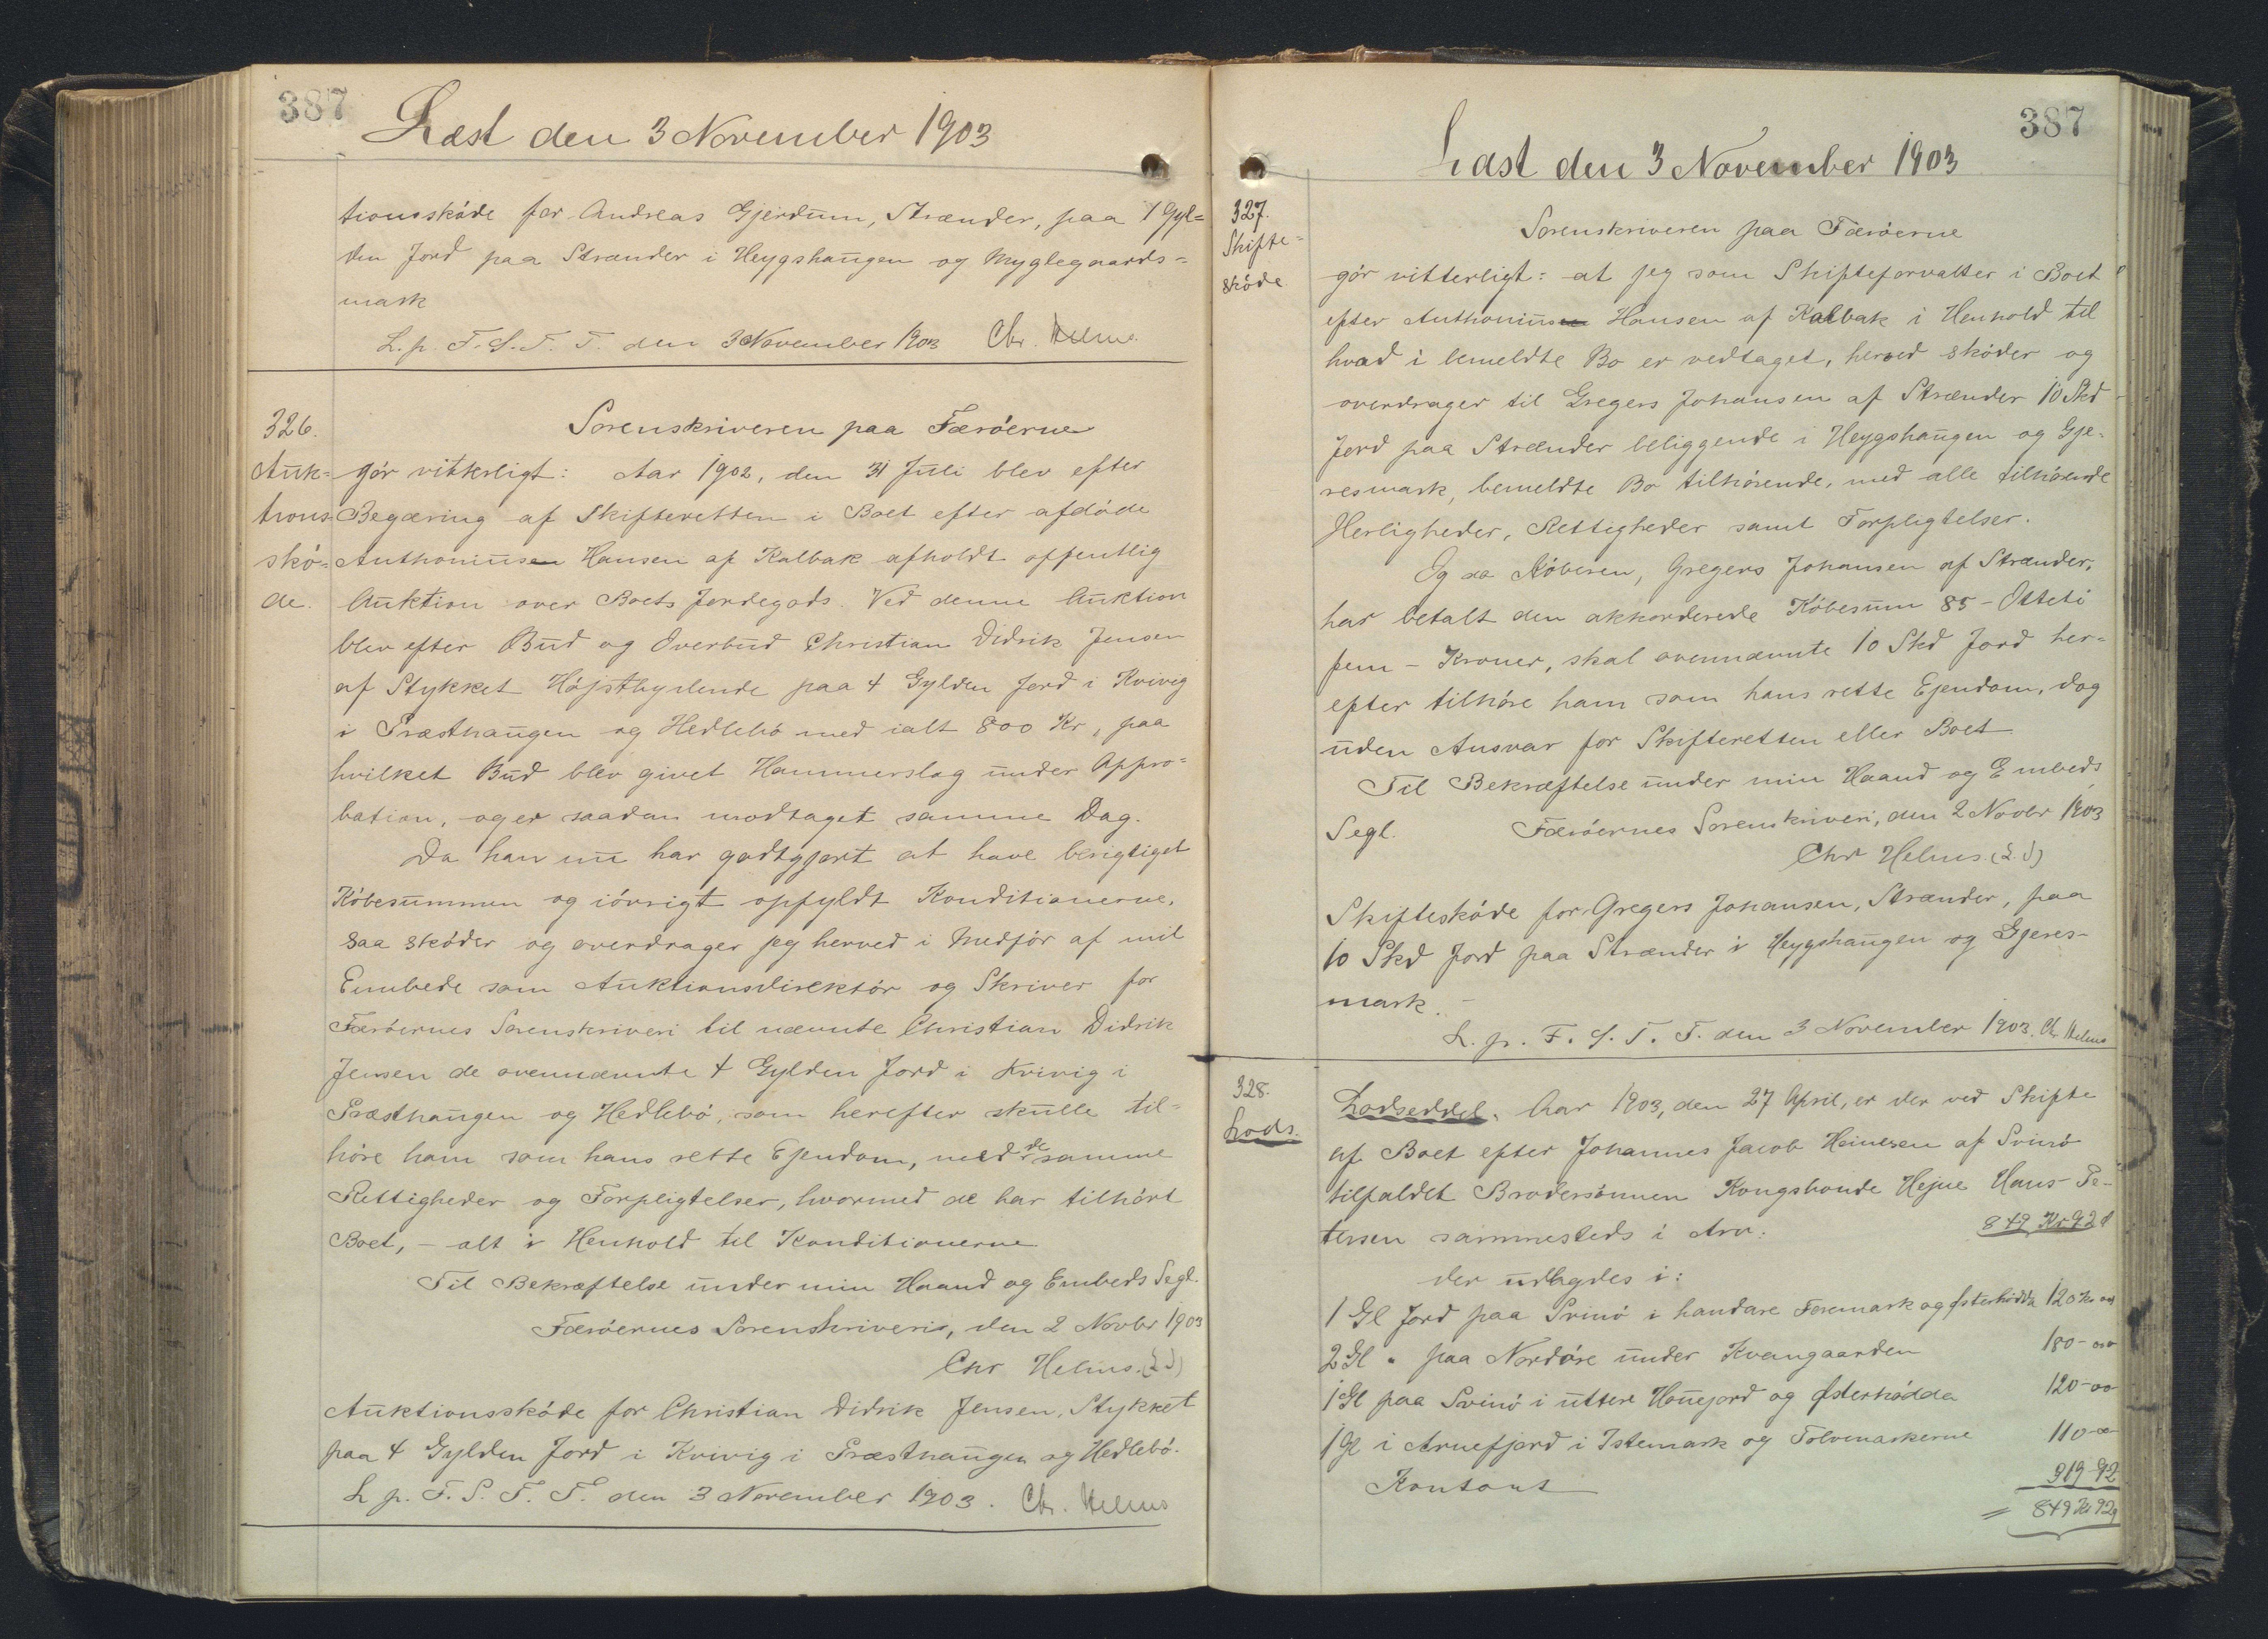 387
Læst den 3 November 1903
tionsskóde for Andreas Gjerdum, Strænder, paa 1 Gyl=
den Jord paa Strænder i Heygshaugen og Myglegaards=
mark
L. p. F. S. T. T. den 3 November 1903 Chr. Helms.
326.
Auk=
tions
skó=
de.
Sorenskriveren paa Færóerne
gór vitterligt: Aar 1902, den 31 Juli blev efter
Begæring af Skifteretten i Boet efter afdóde
Anthonius Hansen af Kalbak afholdt offentlig
Auktion over Boets Jordegods. Ved denne Auktion
blev efter Bud og Overbud Christian Didrik Jensen
af Stykket Hójstbydende paa 4 Gylden Jord i Kvivig
i Præsthaugen og Hedlebó med ialt 800 Kr, paa
hvilket Bud blev givet Hammerslag under Appro=
bation, og er saadan modtaget samme Dag.
Da han nu har godtgjort at have berigtiget
Kóbesummen og ióvrigt opfyldt Konditionerne,
saa skóder og overdrager jeg herved i Medfór af mit
Embede som Auktionsdirektór og Skriver for
Færóernes Sorenskriveri til nævnte Christian Didrik
Jensen de ovennævnte 4 Gylden Jord i Kvivig i
Præsthaugen og Hedlebó, som herefter skulle til=
hóre ham som hans rette Ejendom, med de samme
Rettigheder og Forpligtelser, hvormed de har tilhórt
Boet, - alt i Henhold til Konditionerne
Til Bekræftelse under min Haand og Embeds Segl.
Færóernes Sorenskriveri, den 2 Novbr 1903
Chr Helms. (L.S)
Auktionsskóde for Christian Didrik Jensen, Stykket
paa 4 Gylden Jord i Kvivig i Præsthaugen og Hedlebó.
L p. F. S. T. T. den 3 November 1903. Chr. Helms
387
Læst den 3 November 1903
327.
Skifte=
skóde
Sorenskriveren paa Færóerne
gór vitterligt: at jeg som Skifteforvalter i Boet
efter Anthonius Hansen af Kalbak i Henhold til
hvad i bemeldte Bo er vedtaget, herved skóder og
overdrager til Gregers Johansen af Strænder 10 Skd
Jord paa Strænder beliggende i Heygshaugen og Gje=
resmark, bemeldte Bo tilhórende, med alle tilhórende
Herligheder, Rettigheder samt Forpligtelser.
Og da Kóberen, Gregers Johansen af Strænder,
har betalt den akkorderede Kóbesum 85 - Otteti
fem - Kroner, skal ovennævnte 10 Skd Jord her=
efter tilhóre ham som hans rette Ejendom, dog
uden Ansvar for Skifteretten eller Boet
Til Bekræftelse under min Haand og Embeds
Segl. Færóernes Sorenskriveri, den 2 Novbr 1903
Chr Helms. (L.S)
Skifteskóde for Gregers Johansen, Strænder, paa
10 Skd Jord paa Strænder i Heygshaugen og Gjeres-
mark.
L. p. F. S. T. T. den 3 November 1903. Chr Helms
328.
Lods.
Lodseddel. Aar 1903, den 27 April, er der ved Skifte
af Boet efter Johannes Jacob Heinesen af Svinó
tilfaldet Brodersónnen Kongsbonde Hejne Hans Pe-
tersen sammesteds i Arv: 849 Kr 92
der udlægdes i:
1 Gl Jord paa Svinó i handare Foremark og Østerhódda 120 Kr
2 Gl " paa Nordóre under Kvangaarden 180-00
1 Gl paa Svinó i uttere Hauejord og Østerhódda 120-00
1 Gl i Arnefjord i Istemark og Tolvmarkerne 110-00
Kontant 319-92
= 849 Kr 92